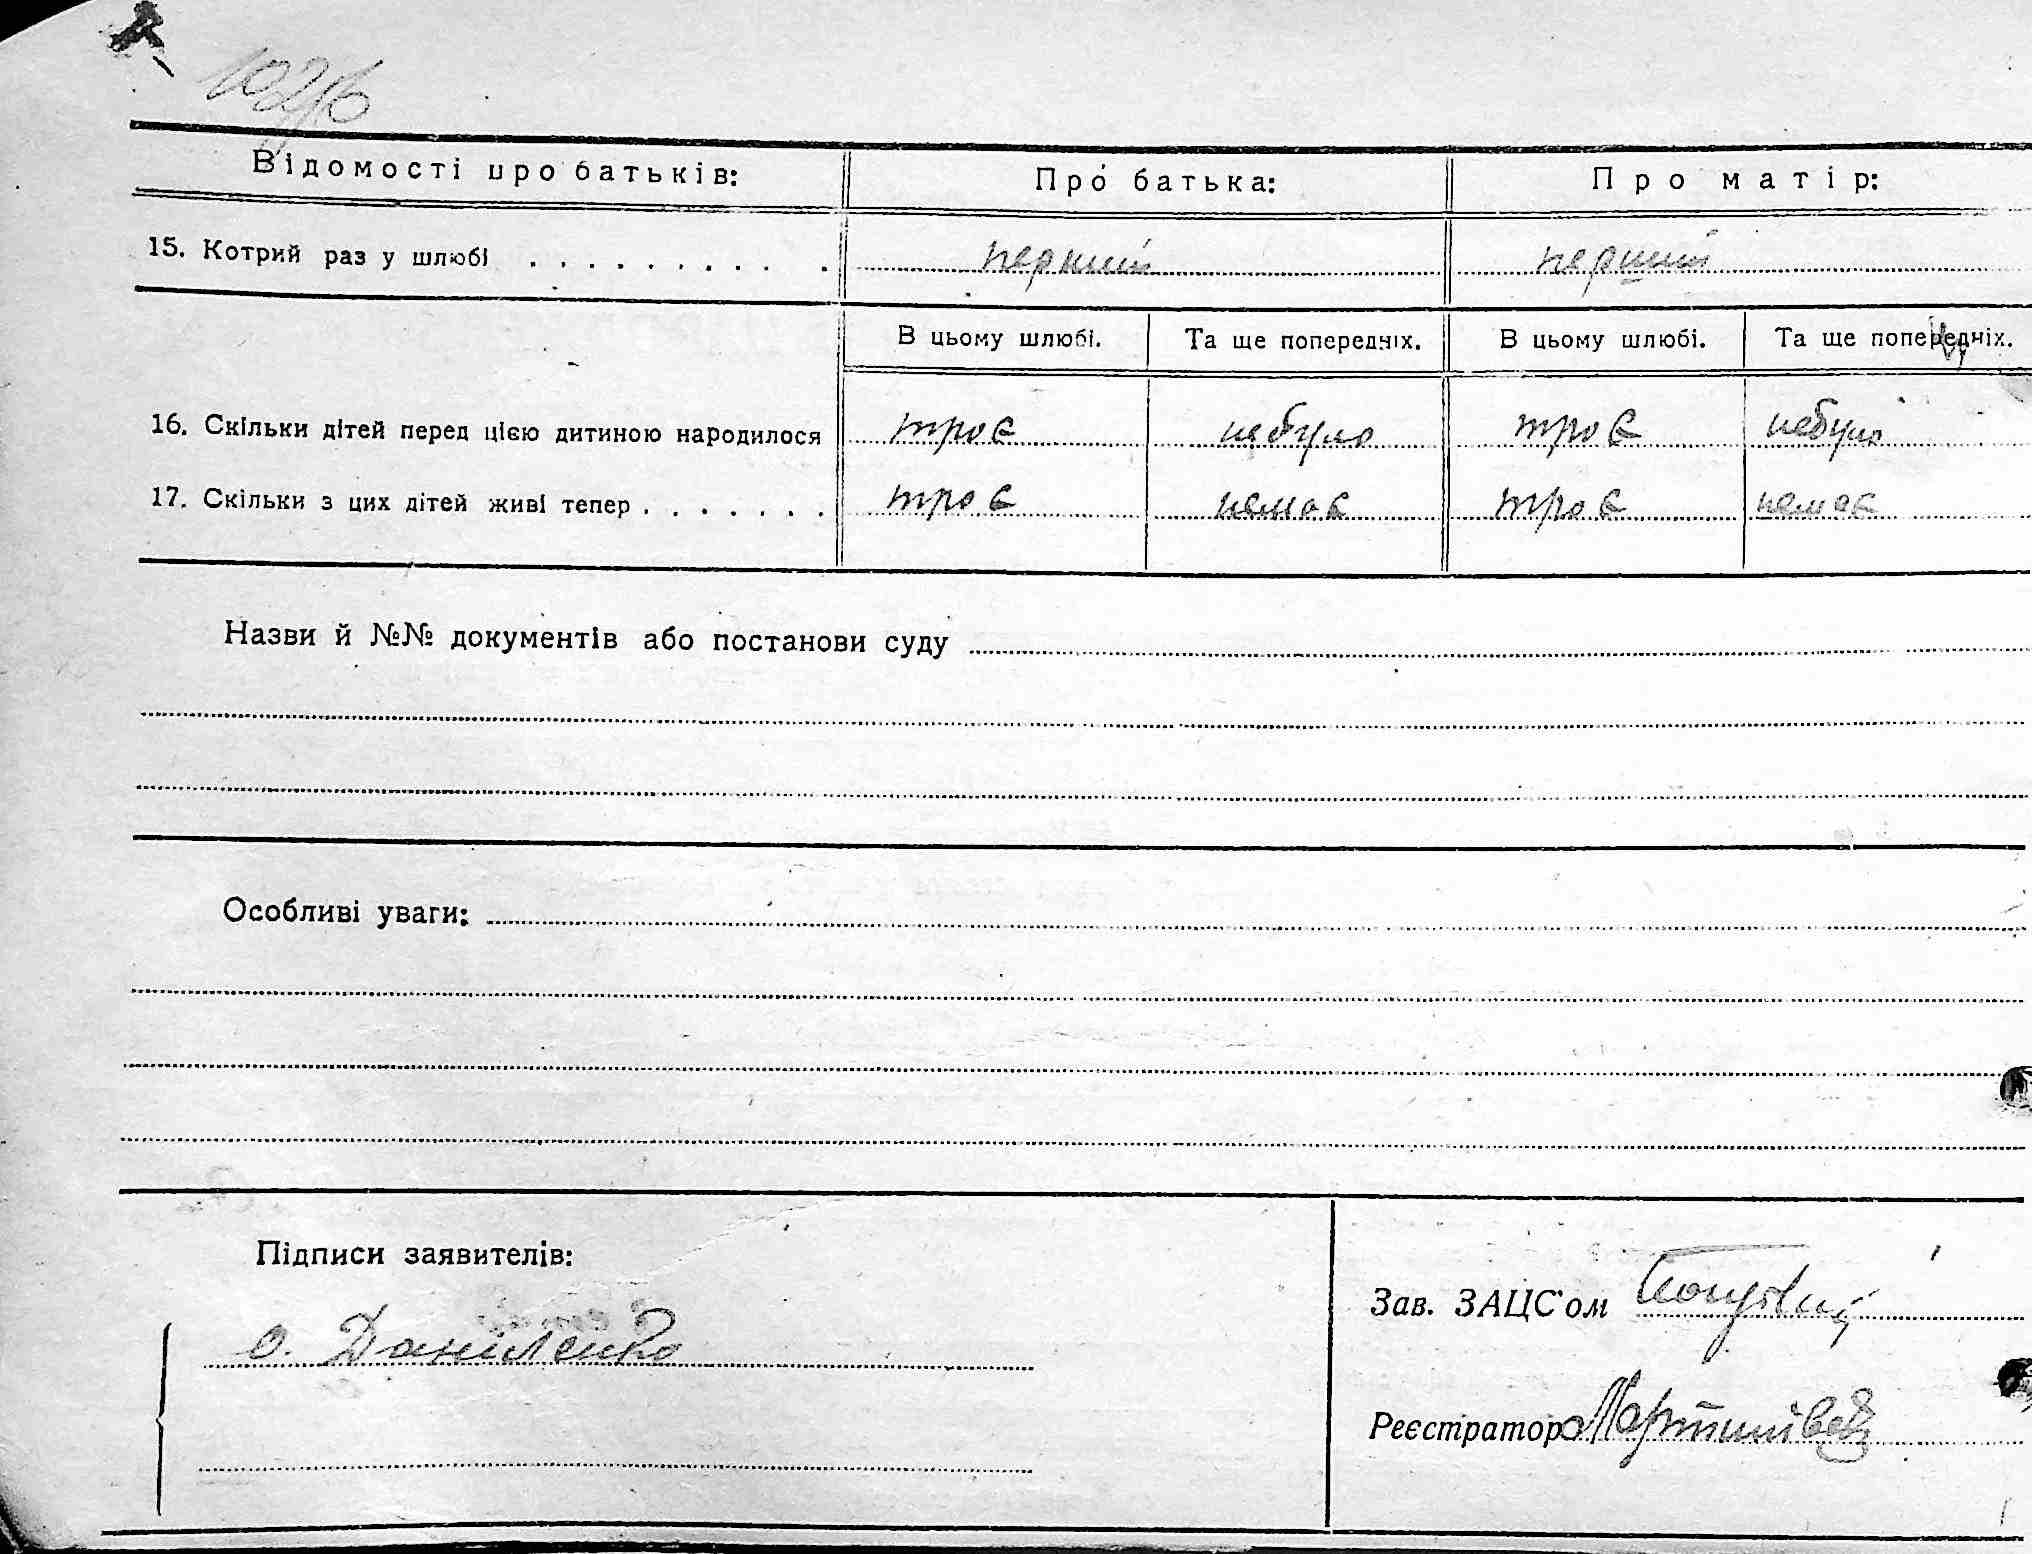 Відомості про батьків: Про батька: Про матір:
15. Котрий раз у шлюбі . . . . . . . . . . перший перший
В цьому шлюбі. Та ще попередніх. В цьому шлюбі. Та ще попередніх.
16. Скільки дітей перед цією дитиною народилося троє небуло троє небуло
17. Скільки з цих дітей живі тепер . . . . . . . троє немає троє немає
Назви й №№ документів або постанови суду
Особливі уваги:
Підписи заявителів:
Зав. ЗАЦС'ом
О. Даніленко
Реєстратор